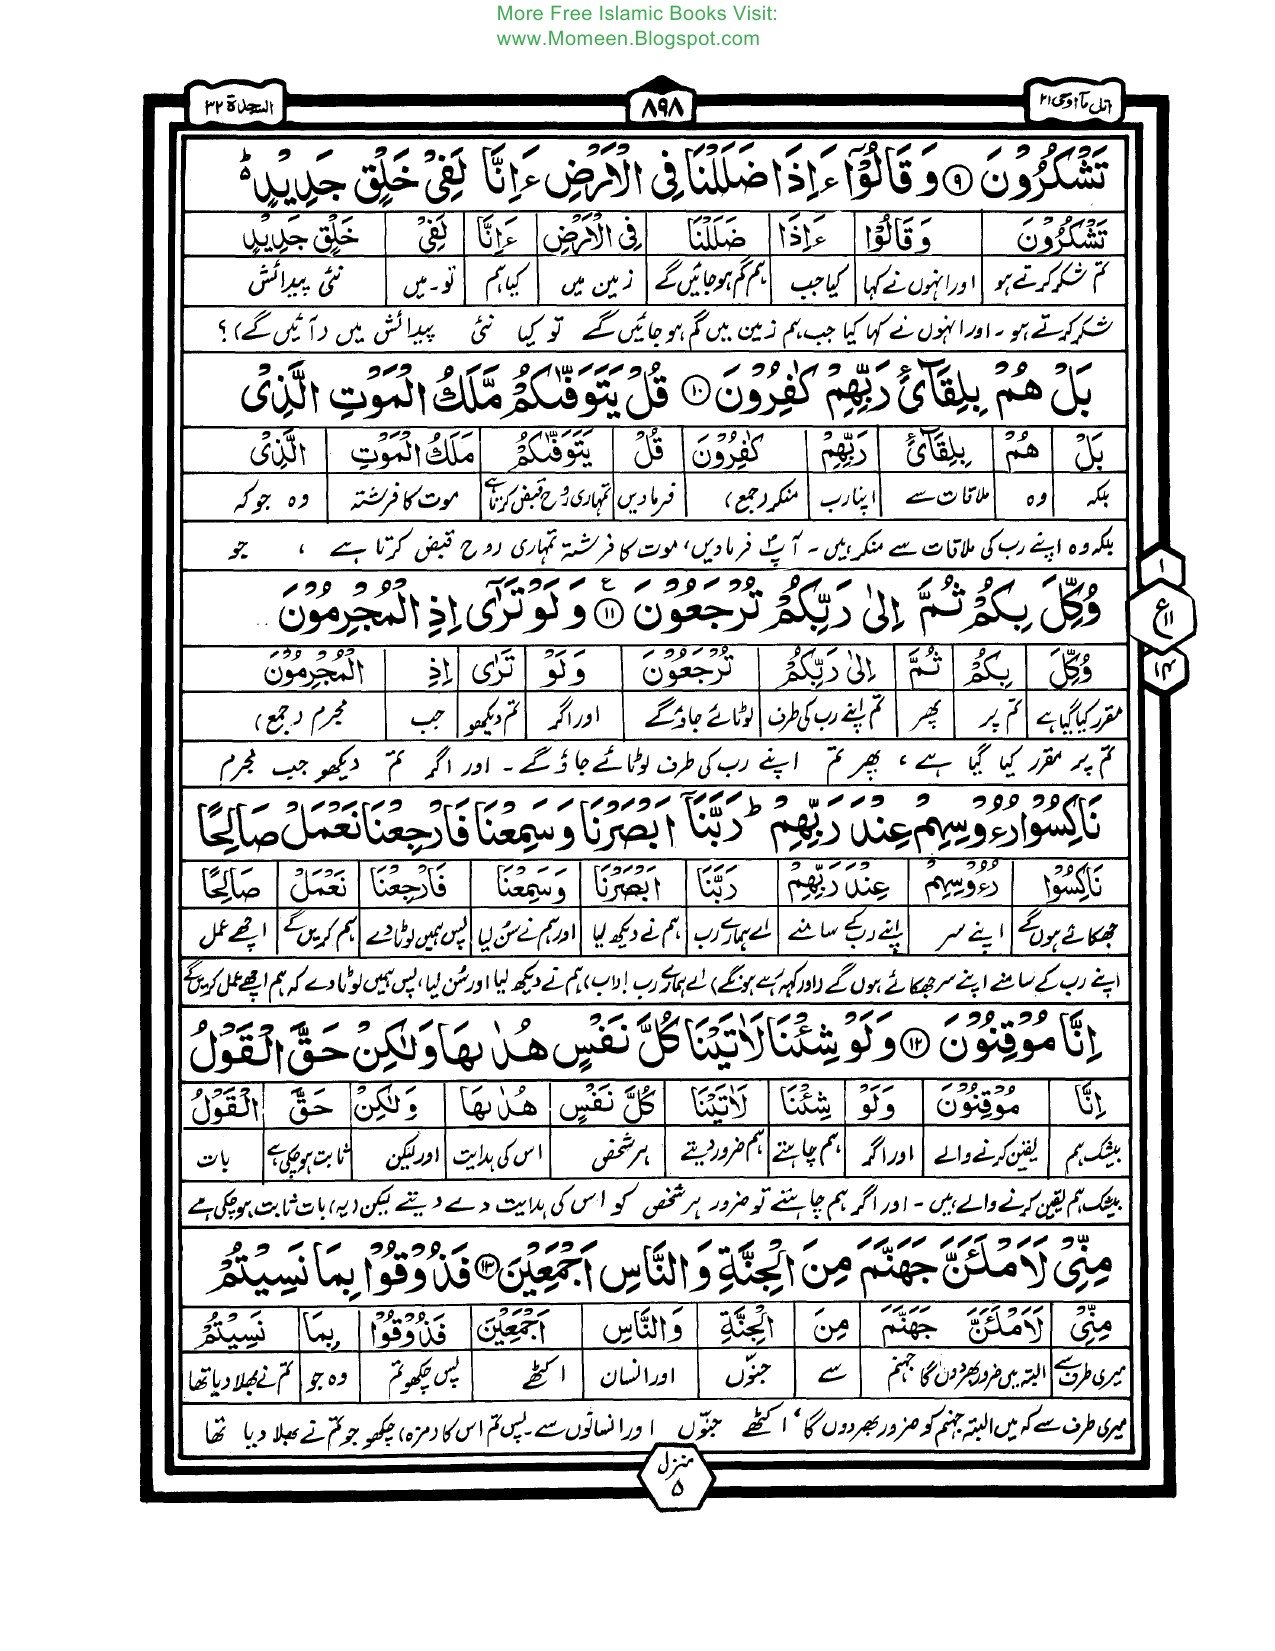 More Free Islamic Books Visit:
www.Momeen.Blogspot.com
اتل مآ اوحی ۲۱
۸۹۸
السجدة ۳۲
تَشْكُرُوْنَ ۹ وَقَالُوْٓا ءَاِذَا ضَلَلْنَا فِی الْاَرْضِ ءَاِنَّا لَفِیْ خَلْقٍ جَدِیْدٍ ؕ
تَشْكُرُوْنَ وَقَالُوْٓا ءَاِذَا ضَلَلْنَا فِی الْاَرْضِ ءَاِنَّا لَفِیْ خَلْقٍ جَدِیْدٍ
تم شکر کرتے ہو اور انہوں نے کہا کیا جب ہم گم ہوجائیں گے زمین میں کیا ہم تو۔میں نئی پیدائش
شکر کرتے ہو ۔ اور انہوں نے کہا کیا جب ہم زمین میں گم ہو جائیں گے تو کیا نئی پیدائش میں (آئیں گے) ؟
بَلْ هُمْ بِلِقَآئِ رَبِّهِمْ كٰفِرُوْنَ ۱۰ قُلْ یَتَوَفّٰىكُمْ مَّلَكُ الْمَوْتِ الَّذِیْ
بَلْ هُمْ بِلِقَآئِ رَبِّهِمْ كٰفِرُوْنَ قُلْ یَتَوَفّٰىكُمْ مَلَكُ الْمَوْتِ الَّذِیْ
بلکہ وہ ملاقات سے اپنا رب منکر (جمع) فرمادیں تمہاری روح قبض کرتا ہے موت کا فرشتہ وہ جو کہ
بلکہ وہ اپنے رب کی ملاقات سے منکر ہیں ۔ آپؐ فرمادیں، موت کا فرشتہ تمہاری روح قبض کرتا ہے ، جو
وُكِّلَ بِكُمْ ثُمَّ اِلٰی رَبِّكُمْ تُرْجَعُوْنَ ۱۱ ع وَلَوْ تَرٰٓی اِذِ الْمُجْرِمُوْنَ
۱
ع ۱۱
۱۴
وُكِّلَ بِكُمْ ثُمَّ اِلٰی رَبِّكُمْ تُرْجَعُوْنَ وَلَوْ تَرٰی اِذِ الْمُجْرِمُوْنَ
مقرر کیا گیا ہے تم پر پھر تم اپنے رب کی طرف لوٹائے جاؤ گے اور اگر تم دیکھو جب مجرم (جمع)
تم پر مقرر کیا گیا ہے ، پھر تم اپنے رب کی طرف لوٹائے جاؤ گے ۔ اور اگر تم دیکھو جب مجرم
نَاكِسُوْا رُءُوْسِهِمْ عِنْدَ رَبِّهِمْ ؕ رَبَّنَآ اَبْصَرْنَا وَسَمِعْنَا فَارْجِعْنَا نَعْمَلْ صَالِحًا
نَاكِسُوْا رُءُوْسِهِمْ عِنْدَ رَبِّهِمْ رَبَّنَا اَبْصَرْنَا وَسَمِعْنَا فَارْجِعْنَا نَعْمَلْ صَالِحًا
جھکائے ہوں گے اپنے سر اپنے رب کے سامنے اے ہمارے رب ہم نے دیکھ لیا اور ہم نے سن لیا پس ہمیں لوٹا دے ہم کریں گے اچھے عمل
اپنے رب کے سامنے اپنے سر جھکائے ہوں گے (اور کہہ رہے ہونگے) اے ہمارے رب! (اب) ہم نے دیکھ لیا اور سن لیا، پس ہمیں لوٹا دے کہ ہم اچھے عمل کریں گے
اِنَّا مُوْقِنُوْنَ ۱۲ وَلَوْ شِئْنَا لَاٰتَیْنَا كُلَّ نَفْسٍ هُدٰىهَا وَلٰكِنْ حَقَّ الْقَوْلُ
اِنَّا مُوْقِنُوْنَ وَلَوْ شِئْنَا لَاٰتَیْنَا كُلَّ نَفْسٍ هُدٰىهَا وَلٰكِنْ حَقَّ الْقَوْلُ
بیشک ہم یقین کرنے والے اور اگر ہم چاہتے ہم ضرور دیتے ہر شخص اس کی ہدایت اور لیکن ثابت ہوچکی ہے بات
بیشک ہم یقین کرنے والے ہیں ۔ اور اگر ہم چاہتے تو ضرور ہر شخص کو اس کی ہدایت دے دیتے لیکن (یہ) بات ثابت ہوچکی ہے
مِنِّیْ لَاَمْلَئَنَّ جَهَنَّمَ مِنَ الْجِنَّةِ وَالنَّاسِ اَجْمَعِیْنَ ۱۳ فَذُوْقُوْا بِمَا نَسِیْتُمْ
مِنِّیْ لَاَمْلَئَنَّ جَهَنَّمَ مِنَ الْجِنَّةِ وَالنَّاسِ اَجْمَعِیْنَ فَذُوْقُوْا بِمَا نَسِیْتُمْ
میری طرف سے البتہ میں ضرور بھردوں گا جہنم سے جنّوں اور انسان اکٹھے پس چکھو تم وہ جو تم نے بھلا دیا تھا
میری طرف سے کہ میں البتہ جہنم کو ضرور بھر دوں گا، اکٹھے جنّوں اور انسانوں سے ۔ پس تم اس کا (مزہ) چکھو جو تم نے بھلا دیا تھا
منزل ۵